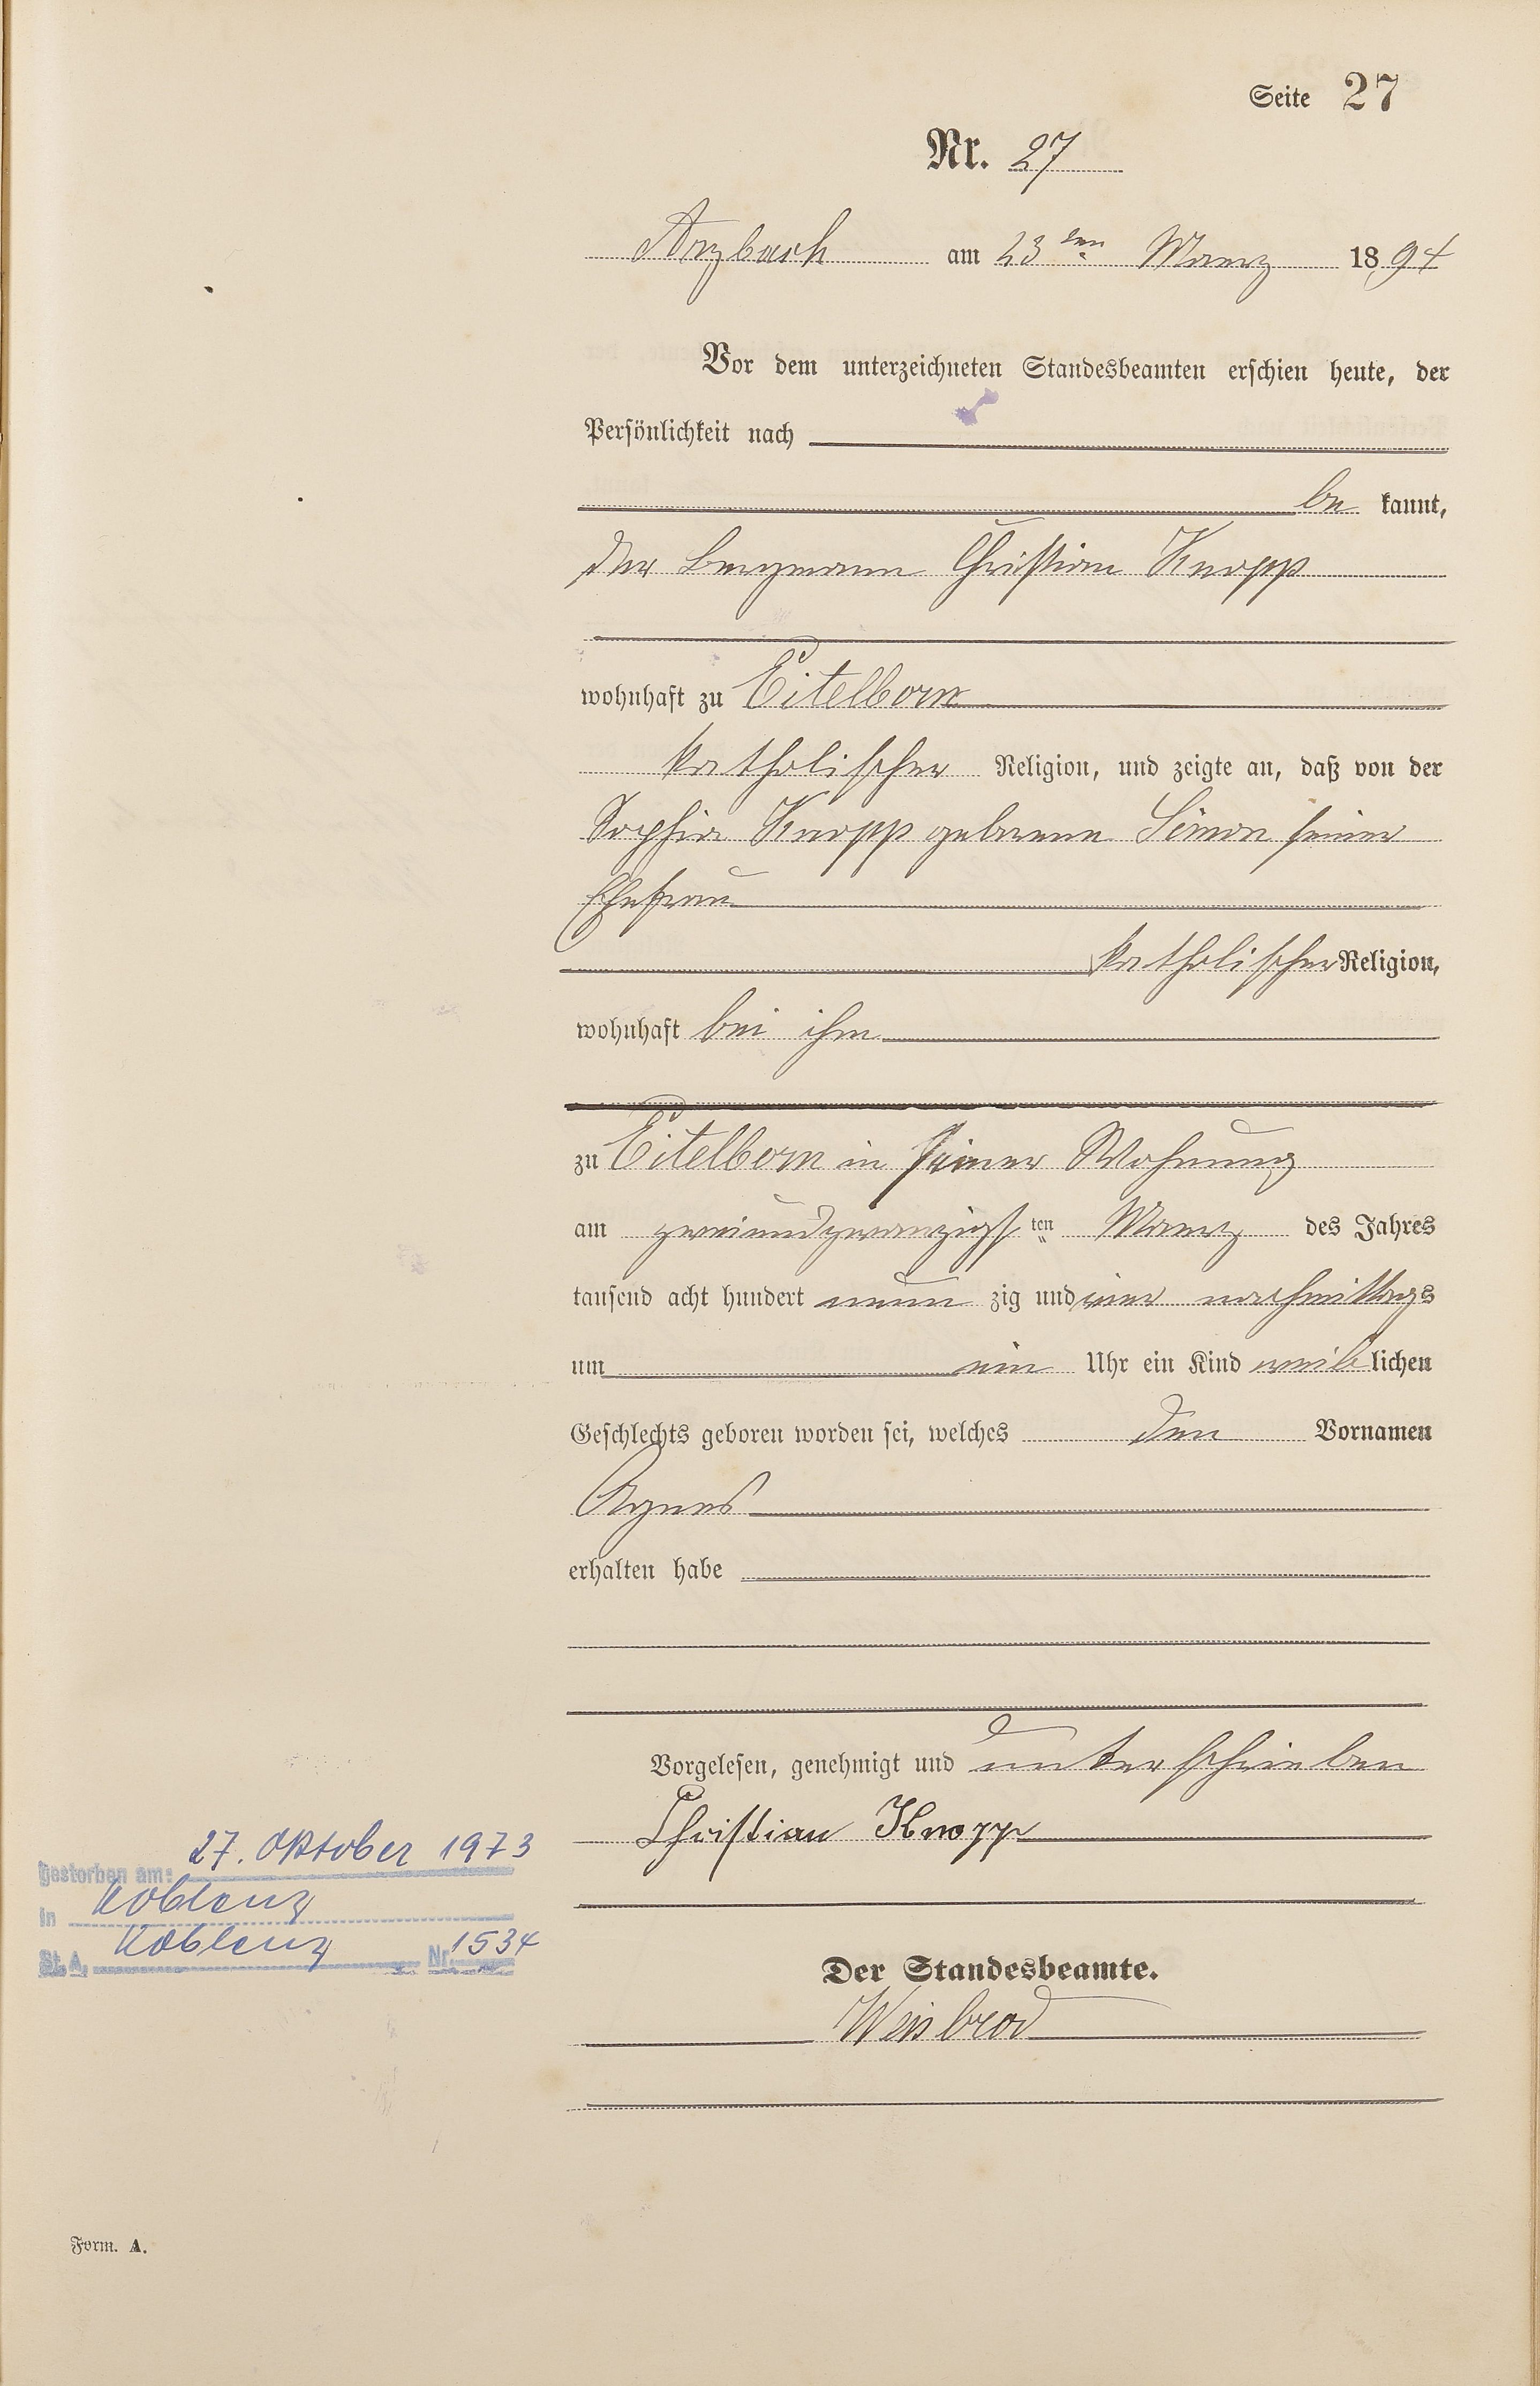 Seite 27
Nr. 27
Arzbach am 23ten Maerz 1894
Vor dem unterzeichneten Standesbeamten erschien heute, der
Persönlichkeit nach
be kannt,
der Bergmann Christian Knopp
wohnhaft zu Eitelborn
katholischer Religion, und zeigte an, daß von der
Sophia Knopp geborene Simon seiner
Ehefrau
katholischer Religion,
wohnhaft bei ihm
zu Eitelborn in seiner Wohnung
am zweiundzwanzigsten Maerz des Jahres
tausend acht hundert neun zig und vier nachmittags
um ein Uhr ein Kind weib lichen
Geschlechts geboren worden sei, welches den Vornamen
Agnes
erhalten habe
Vorgelesen, genehmigt und unterschrieben
Christian Knopp
Der Standesbeamte.
Weisbrod
gestorben am: 27. Oktober 1973
in Koblenz
St. A. Koblenz Nr. 1534
Form. A.